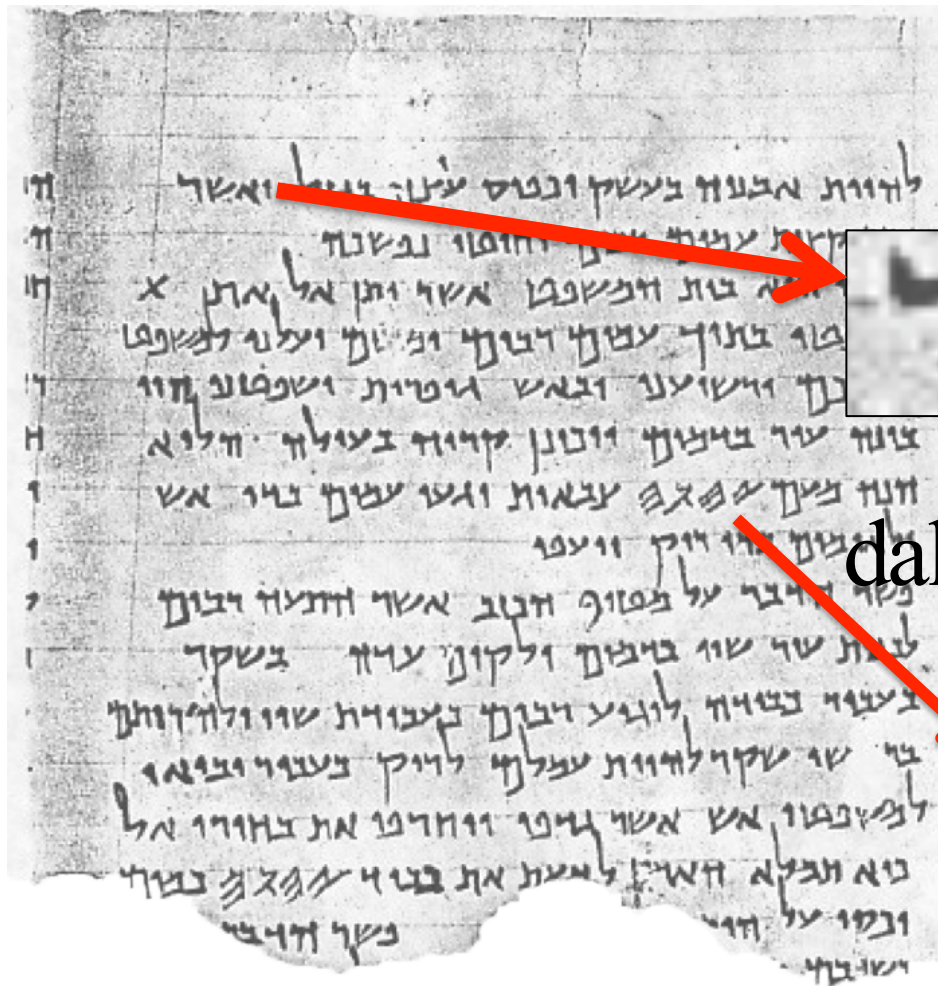 להיות אבניה בעשק וכפיס עיצה בגזל ואשר
קצות עמים וחוטי נפשכה
הוא בית המשפט אשר יתן אל את X
בתוך עמים רבים ומשם יעלנו למשפט
ירשיענו ובאש גופרית ישפטנו הוי
בונה עיר בדמים ויכונן קריה בעולה הלוא
הנה מעם 𐤉𐤄𐤅𐤄 צבאות יגעו עמים בדי אש
ולאומים בדי ריק ייעפו
פשר הדבר על מטיף הכזב אשר התעה רבים
לבנות עיר שוו בדמים ולקים עדה בשקר
בעבור כבודה לוגיע רבים בעבודת שוו ולהרותם
שקר להיות עמלם לריק בעבור יבואו
למשפטי אש אשר גדפו ויחרפו את בחירי אל
כיא תמלא הארץ לדעת את כבוד 𐤉𐤄𐤅𐤄 כמים
יכסו על הים פשר הדבר